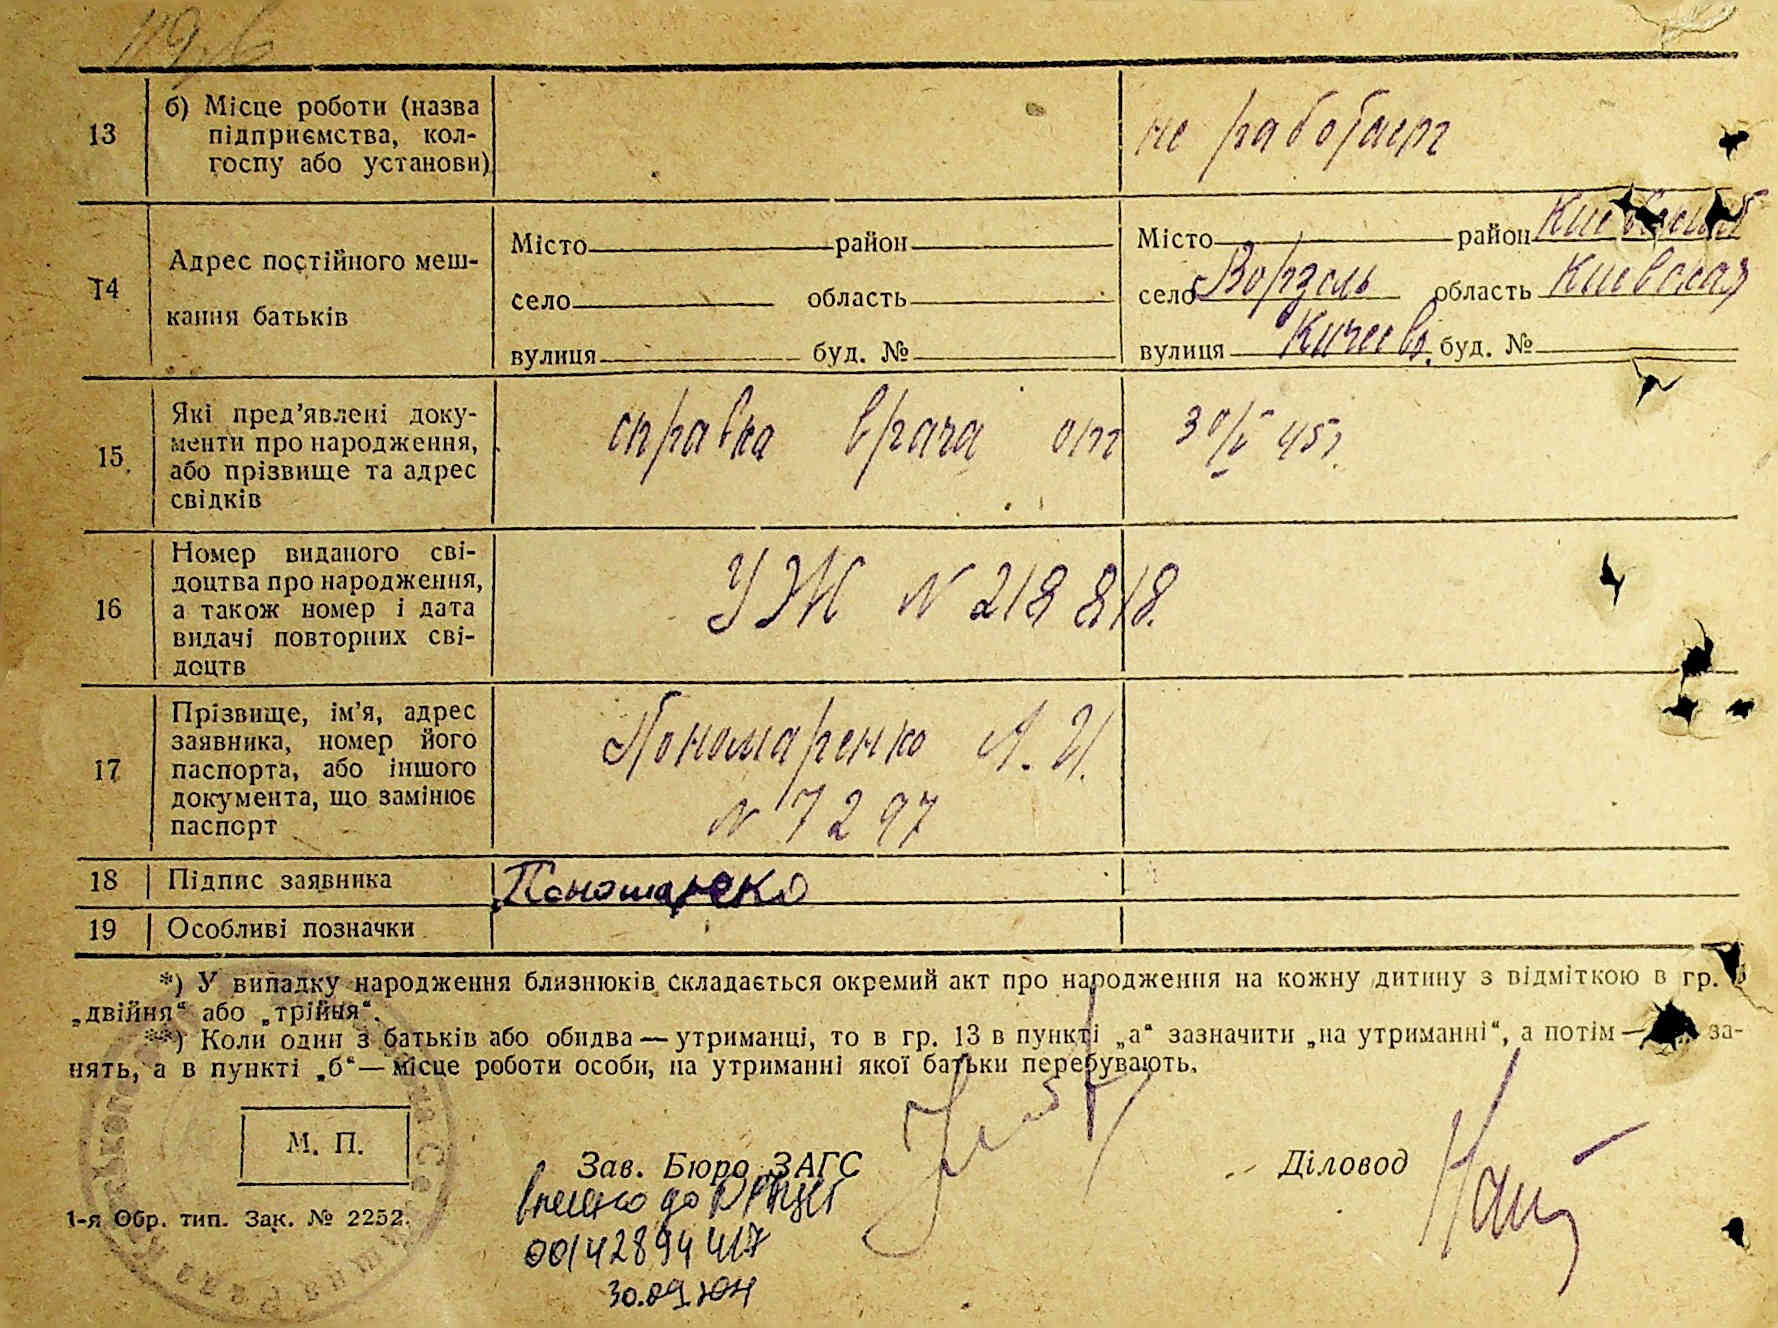 13
б) Місце роботи (назва
підприємства, кол-
госпу або установи)
не работает
14
Адрес постійного меш-
кання батьків
Місто район
село область
вулиця буд. №
Місто район Киевский
село Ворзель область Киевская
вулиця буд. №
15
Які пред’явлені доку-
менти про народження,
або прізвище та адрес
свідків
справка врача от 30/V 45г.
16
Номер виданого сві-
доцтва про народження,
а також номер і дата
видачі повторних сві-
доцтв
УЖ N 218 818.
17
Прізвище, ім’я, адрес
заявника, номер його
паспорта, або іншого
документа, що замінює
паспорт
Пономаренко А. И.
N 7297
18 Підпис заявника
19 Особливі позначки
*) У випадку народження близнюків складається окремий акт про народження на кожну дитину з відміткою в гр.
„двійня“ або „трійня“.
**) Коли один з батьків або обидва — утриманці, то в гр. 13 в пункті „а“ зазначити „на утриманні“, а потім — за-
нять, а в пункті „б“ — місце роботи особи, на утриманні якої батьки перебувають.
М. П.
Зав. Бюро ЗАГС
Діловод
внесено до ДРАЦСГ
00142894417
1-я Обр. тип. Зак. № 2252.